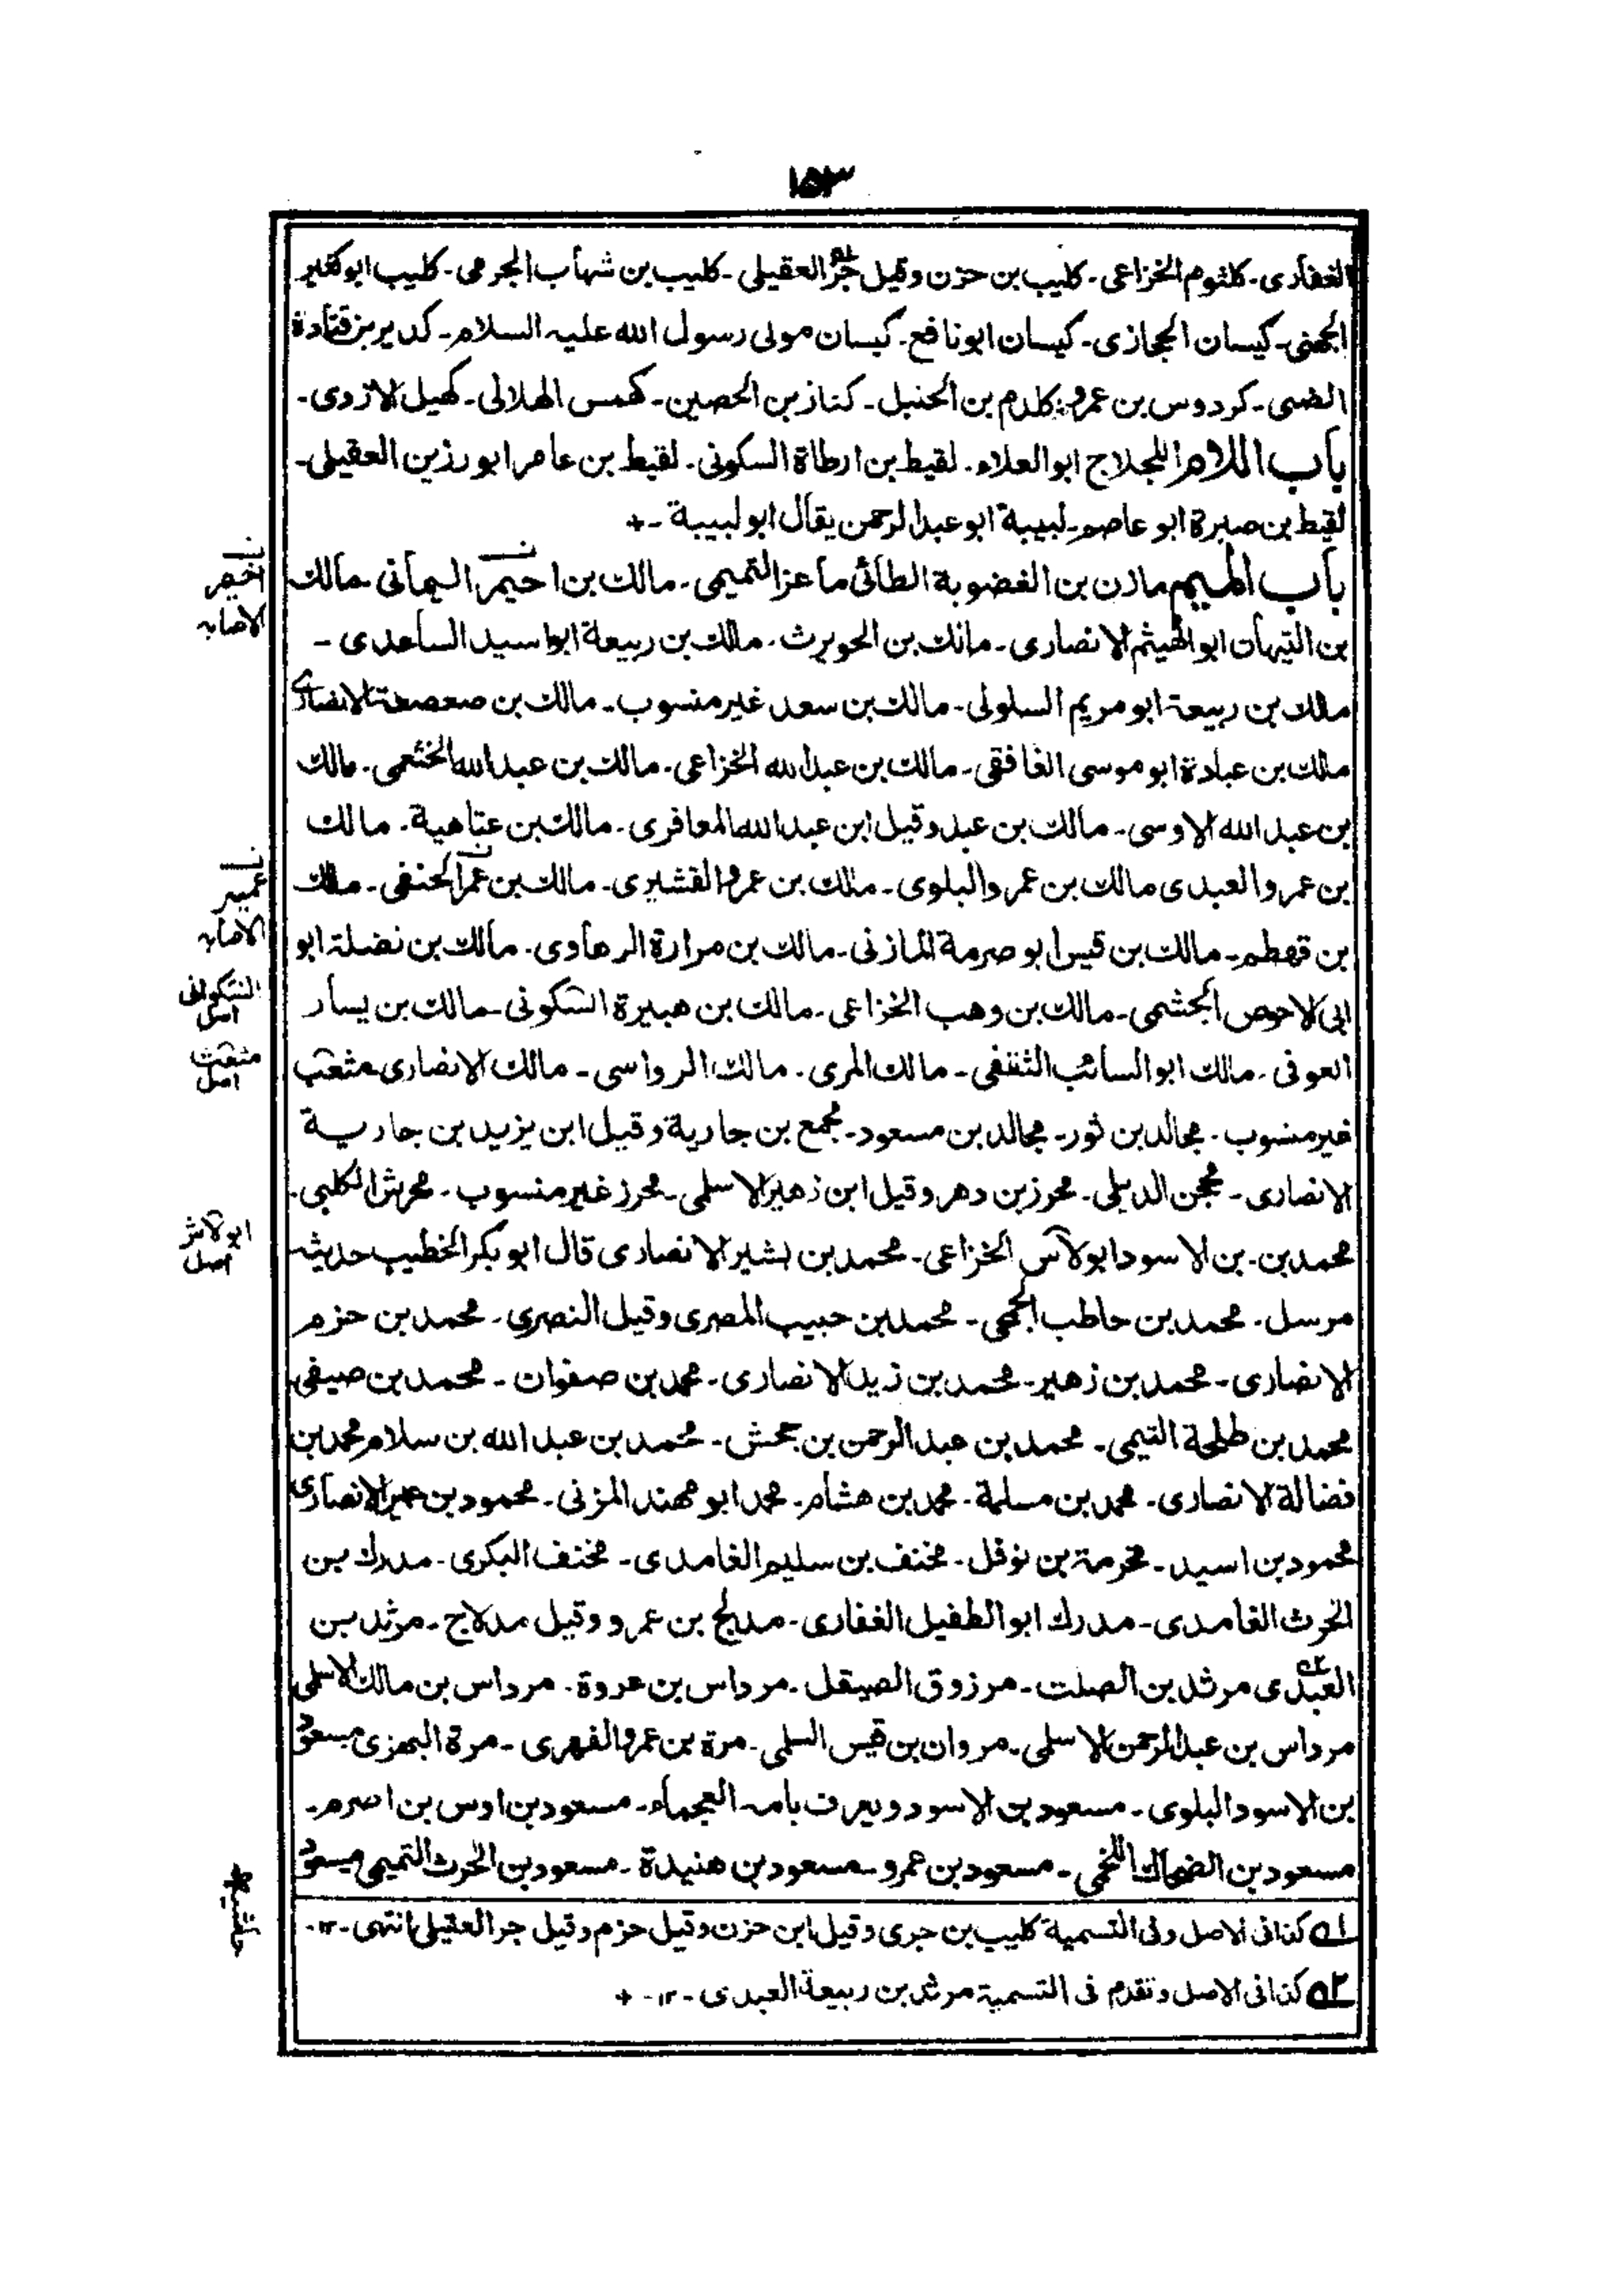 ١٥٣
الغفاری۔ کلثوم الخزاعی۔ کلیب بن حزن وقیل جر١ـه العقیلی۔ کلیب بن شهاب الجرمی۔ کلیب ابو کثیر
الجهنی۔ کیسان الحجازی۔ کیسان ابو نافع۔ کیسان مولی رسول الله علیہ السلام۔ کدیر بن قتادة
الضبی۔ کردوس بن عمرو۔ کلدم بن الحنبل۔ کناز بن الحصین۔ کهمس الهلالی۔ کهیل الازدی۔
باب اللام اللجلاج ابو العلاء۔ لقیط بن ارطاة السکونی۔ لقیط بن عامر ابو رزین العقیلی۔
لقیط بن صبرة ابو عاصم۔ لبیبة ابو عبد الرحمن یقال ابو لبیبة۔+
باب المیم مازن بن الغضوبة الطائی ماعز التمیمی۔ مالک بن احیمر الیمانی۔ مالک
بن التیهان ابو الهیثم الانصاری۔ مالک بن الحویرث۔ مالک بن ربیعة ابو اسید الساعدی۔
مالک بن ربیعة ابو مریم السلولی۔ مالک بن سعد غیر منسوب۔ مالک بن صعصعة الانصاری
مالک بن عبادة ابو موسی الغافقی۔ مالک بن عبد الله الخزاعی۔ مالک بن عبد الله الخثعمی۔ مالک
بن عبد الله الاوسی۔ مالک بن عبد وقیل ابن عبد الله المعافری۔ مالک بن عتاهیة۔ مالک
بن عمرو العبدی مالک بن عمرو البلوی۔ مالک بن عمرو القشیری۔ مالک بن عمر الحنفی۔ مالک
بن قهطم۔ مالک بن قیس ابو صرمة المازنی۔ مالک بن مرارة الرهاوی۔ مالک بن نضلة ابو
ابی الاحوص الجشمی۔ مالک بن وهب الخزاعی۔ مالک بن هبیرة السکونی۔ مالک بن یسار
العوفی۔ مالک ابو السائب الثقفی۔ مالک المری۔ مالک الرواسی۔ مالک الانصاری۔ مثعب
غیر منسوب۔ مجالد بن ثور۔ مجالد بن مسعود۔ مجمع بن جاریة وقیل ابن یزید بن جاریة
الانصاری۔ محجن الدیلی۔ محرز بن دهر وقیل ابن زهیر الاسلمی۔ محرز غیر منسوب۔ محرش الکلبی۔
محمد بن۔ بن الاسود ابو لاس الخزاعی۔ محمد بن بشیر الانصاری قال ابو بکر الخطیب حدیثہ
مرسل۔ محمد بن حاطب الجمحی۔ محمد بن حبیب المصری وقیل النصری۔ محمد بن حزم
الانصاری۔ محمد بن زهیر۔ محمد بن زید الانصاری۔ محمد بن صفوان۔ محمد بن صیفی
محمد بن طلحة التیمی۔ محمد بن عبد الرحمن بن جحش۔ محمد بن عبد الله بن سلام محمد بن
فضالة الانصاری۔ محمد بن مسلمة۔ محمد بن هشام۔ محمد ابو مهند المزنی۔ محمود بن عمیر الانصاری
محمود بن اسید۔ مخرمة بن نوفل۔ مخنف بن سلیم الغامدی۔ مخنف البکری۔ مدرک بن
الحرث الغامدی۔ مدرک ابو الطفیل الغفاری۔ مدلج بن عمرو وقیل مدلاج۔ مرثد بن
العبدی٢ـه مرثد بن الصلت۔ مرزوق الصیقل۔ مرداس بن عروة۔ مرداس بن مالک الاسلمی
مرداس بن عبد الرحمن الاسلمی۔ مروان بن قیس السلمی۔ مرة بن عمرو الفهری۔ مرة البهزی مسعود
بن الاسود البلوی۔ مسعود بن الاسود ویعرف بامہ العجماء۔ مسعود بن اوس بن اصرم۔
مسعود بن الضحاک اللخمی۔ مسعود بن عمرو۔ مسعود بن هنیدة۔ مسعود بن الحرث التمیمی مسعود
١ـه کذا فی الاصل وفی التسمیة کلیب بن جری وقیل ابن حزن وقیل حزم وقیل جر العقیلی انتهی۔١٢۔
٢ـه کذا فی الاصل وتقدم فی التسمیة مرثد بن ربیعة العبدی۔١٢۔+
اخیمر
الاصابہ
عمیر
الاصابہ
السکوانی
اصل
مثعث
اصل
ابو لاش
اصل
حاشیه